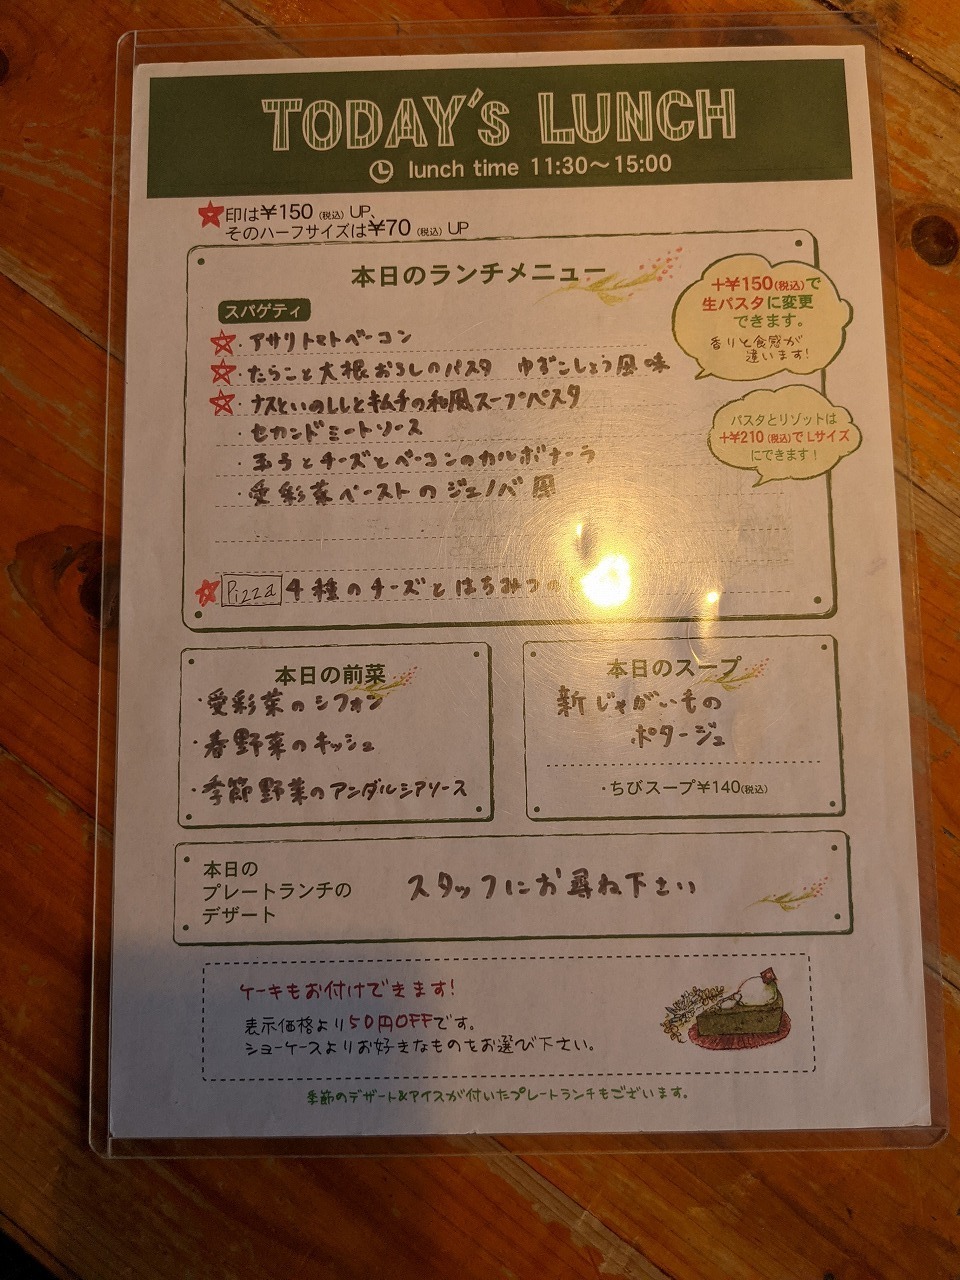 TODAY'S LUNCH
lunch time 11:30〜15:00
印は¥150(税込)UP、
そのハーフサイズは¥70(税込)UP
本日のランチメニュー
スパゲティ
・アサリトマトベーコン
・たらこと大根おろしのパスタ ゆずこしょう風味
・ナスといのししとキムチの和風スープパスタ
・セカンドミートソース
・玉子とチーズとベーコンのカルボナーラ
・愛彩菜ペーストのジェノバ風
Pizza 4種のチーズとはちみつの
+¥150(税込)で
生パスタに変更
できます。
香りと食感が
違います!
パスタとリゾットは
+¥210(税込)でLサイズ
にできます!
本日の前菜
・愛彩菜のシフォン
・春野菜のキッシュ
・季節野菜のアンダルシアソース
本日のスープ
新じゃがいもの
ポタージュ
・ちびスープ¥140(税込)
本日の
プレートランチの
デザート
スタッフにお尋ね下さい
ケーキもお付けできます!
表示価格より50円OFFです。
ショーケースよりお好きなものをお選び下さい。
季節のデザート&アイスが付いたプレートランチもございます。